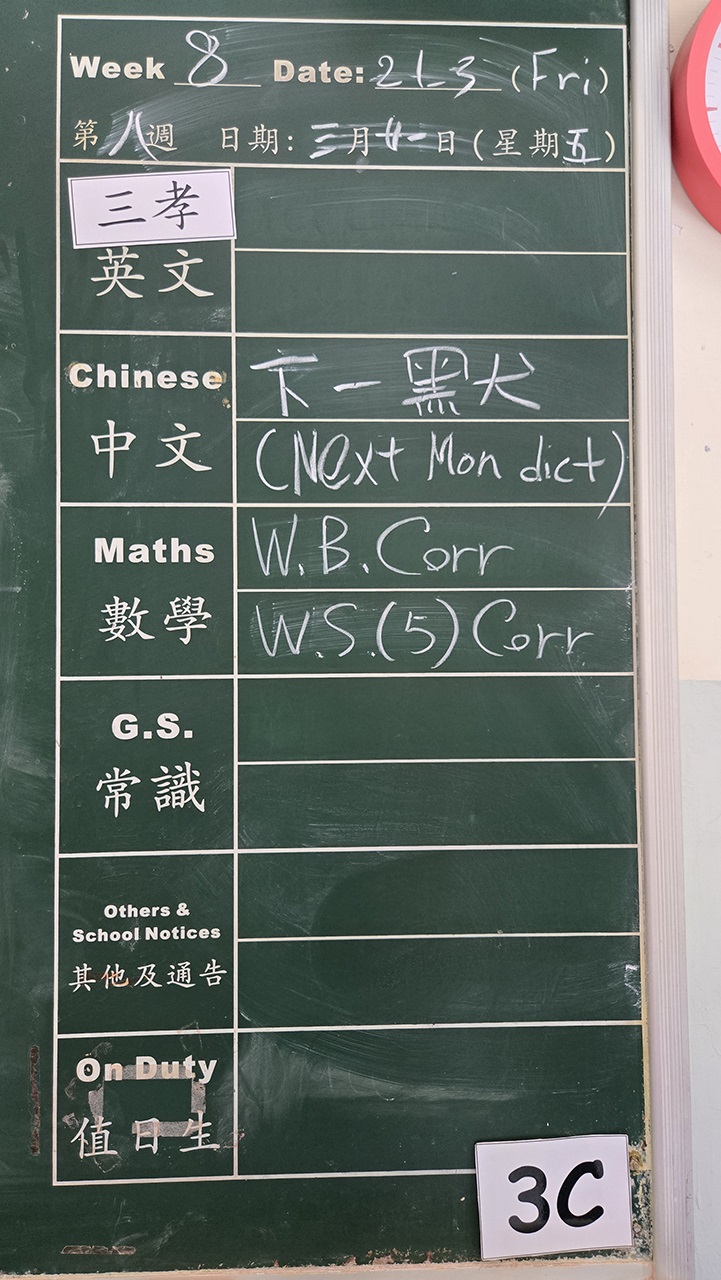 Week 8 Date: 21-3 (Fri)
第八週 日期：三月廿一日(星期五)
三孝
英文
Chinese
中文
卞一黑犬
(Next Mon dict)
Maths
數學
W.B. Corr
W.S.(5) Corr
G.S.
常識
Others &
School Notices
其他及通告
On Duty
值日生
3C